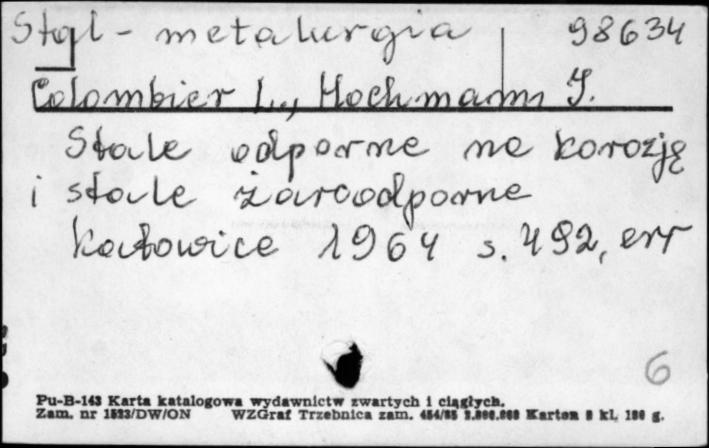 Stal - metalurgia 98634
Colombier L., Hochmann J.
Stale odporne na korozję
i stale żaroodporne
Katowice 1964 s. 492, err
6
Pu-B-143 Karta katalogowa wydawnictw zwartych i ciągłych.
Zam. nr 1523/DW/ON WZGraf Trzebnica zam. Karton kl. g.